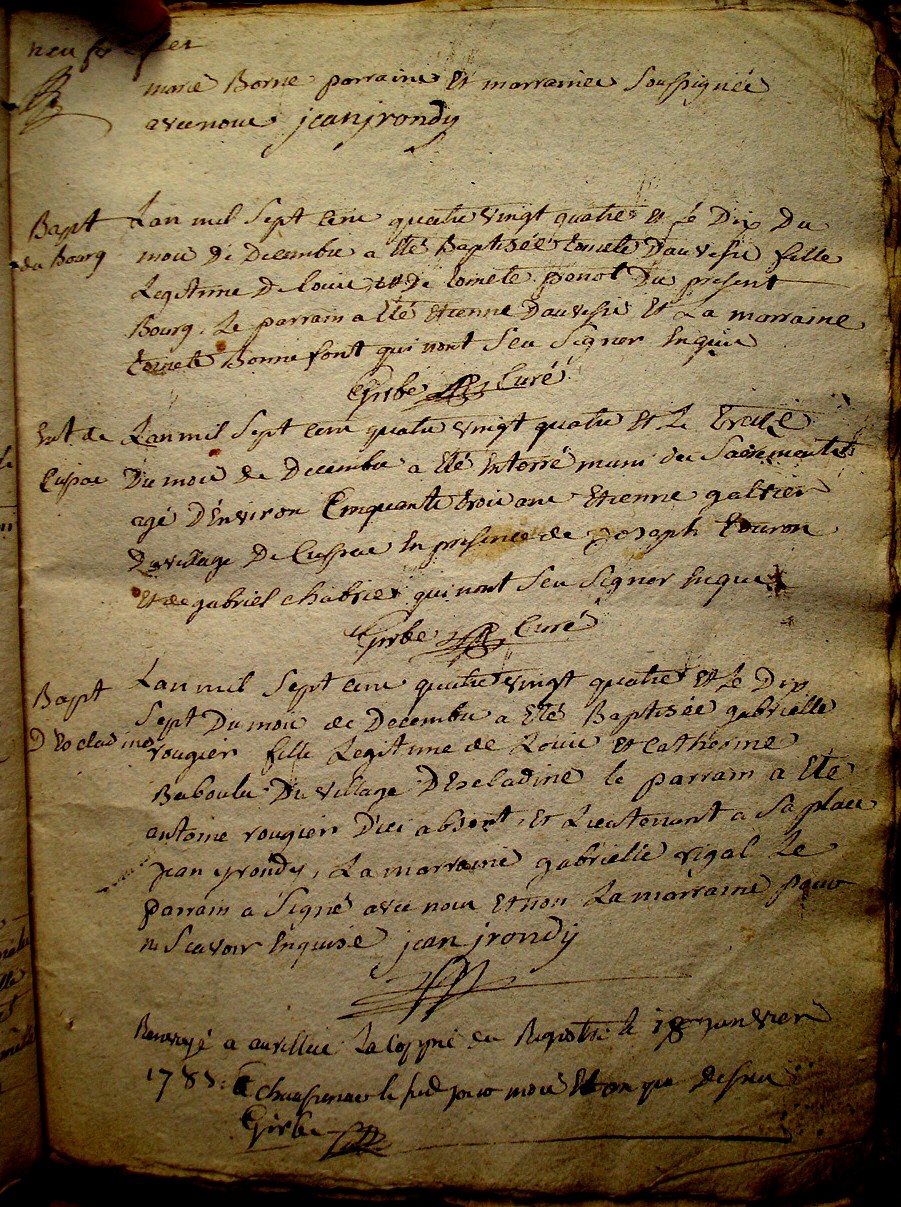 neuf
marie Borne parraine Et marrainee Soussignée
avecnous jeanjrondy
Bapt
du Bourg
Lan mil Sept Cent quatre vingt quatre et Le Dix Du
mois de Decembre a Eté Baptisée Tomete Dauvesre fille
Legitime De Louis et De Tomete ponot Du present
Bourg. Le parrain a Eté Etienne Dauvesre Et La marraine
Tomete Bonnefont qui nont Seu Signer Enquis
Girbe Curé
Ent de
Cuspac
Lan mil Sept Cent quatre vingt quatre Et Le treize
Du mois de Decembre a Eté Entorré muni des Sacrements
agé D'Environ Cinquante trois ans Etienne galtier
Du village De Cuspac En presence de Joseph Touron
Et de gabriel chabrier qui nont Seu Signer Enquis
Girbe Curé
Bapt
D'Escladine
Lan mil Sept Cent quatre vingt quatre Et Le Dix
Sept Du mois de Decembre a Eté Baptisée gabrielle
rougier fille Legitime de Louis Et Catherine
Baboulu Du village D'Escladine le parrain a Eté
antoine rougier D'ici absent, Et Lieutenant a Sa place
Jean jrondy, La marraine gabrielle vigal Le
parrain a Signé avec nous Et non La marraine pour
ne Scavoir Enquise jean jrondy
Renvoyé a aurillac La Coppie du Registre le 18 janvier
1785. a chaussenac le sud pour mois Et an que dessus
Girbe